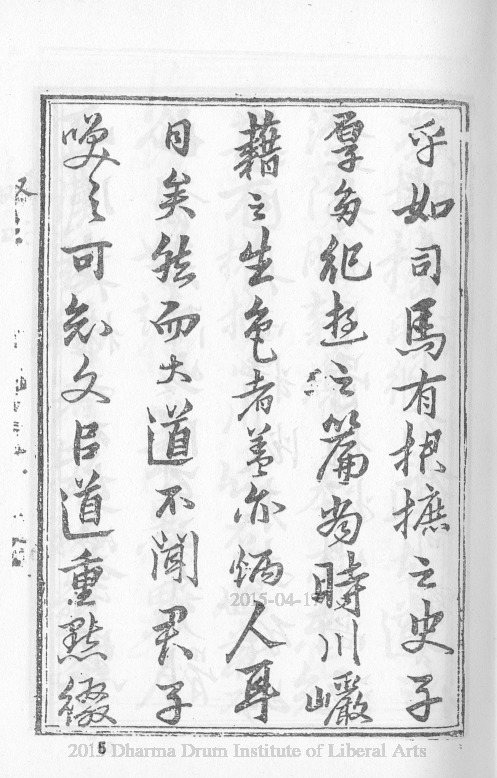 乎如司馬有捃摭之史子
厚多紀遊之篇當時川巖
藉之生色者蓋亦炳人耳
目矣然而大道不聞君子
嘆之可知文以道重點綴
5
2015-04-17
2015 Dharma Drum Institute of Liberal Arts